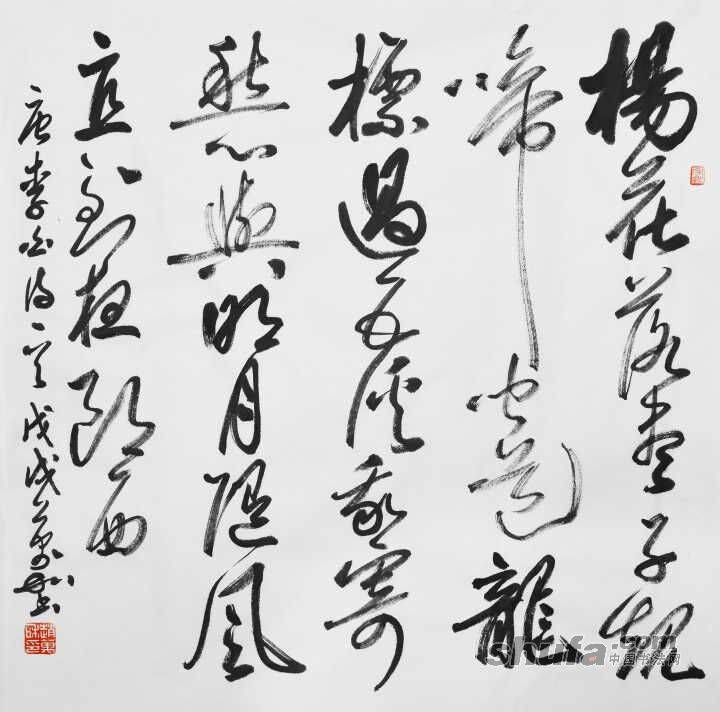 楊花落盡子規
啼聞道龍
標過五溪我寄
愁心與明月隨風
直到夜郎西
唐李白詩一首戊戌
shufa.com
中国书法网